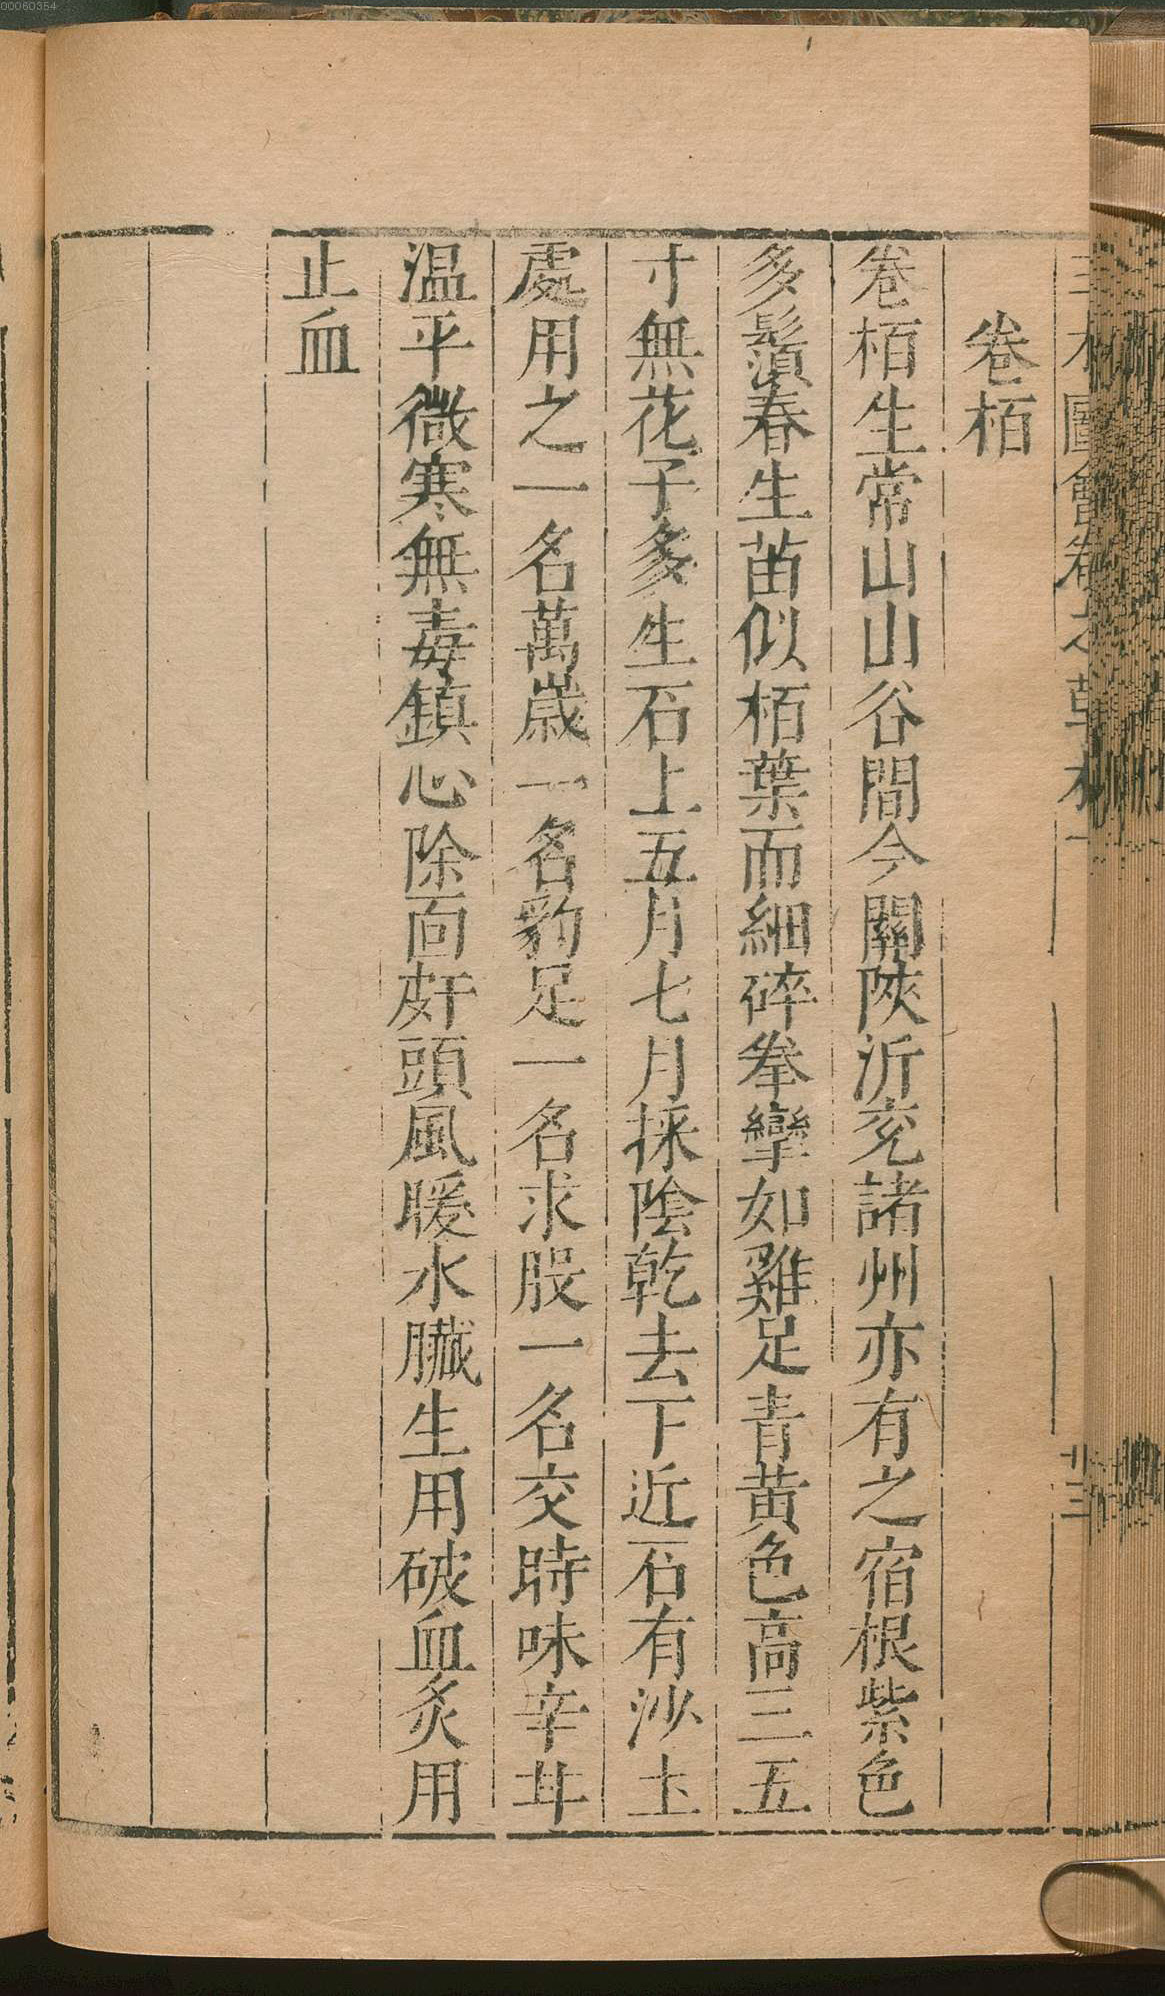 卷栢
卷栢生常山山谷間今關陝沂兖諸州亦有之宿根紫色
多鬚春生苗似栢葉而細碎拳攣如雞足青黄色高三五
寸無花子多生石上五月七月採陰乾去下近石有沙土
處用之一名萬歲一名豹足一名求股一名交時味辛甘
温平微寒無毒鎮心除面皯頭風暖水臟生用破血炙用
止血
00060354